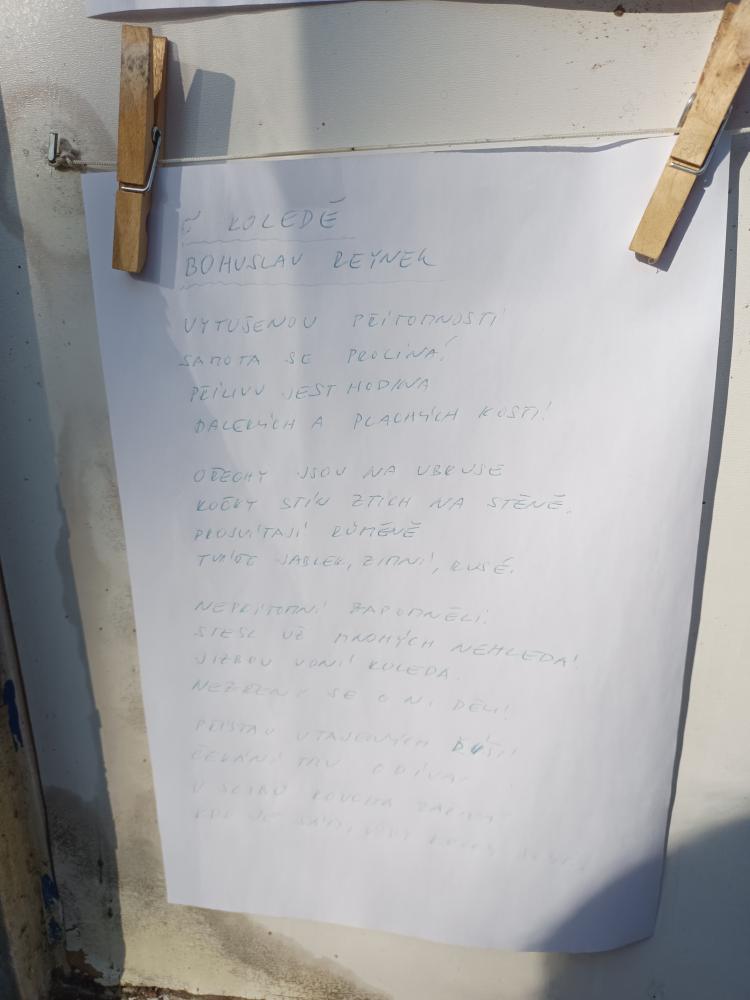 O KOLEDĚ
BOHUSLAV REYNEK
VYTUŠENOU PŘÍTOMNOSTÍ
SAMOTA SE PROLÍNÁ.
PŘÍLIVU JEST HODINA
DALEKÝCH A PLACHÝCH HOSTÍ.
OŘECHY JSOU NA UBRUSE
KOČKY STÍN ZTICH NA STĚNĚ.
PROSVÍTAJÍ RŮMĚNĚ
TVÁŘE JABLEK, ZIMNÍ, RUSÉ.
NEPŘÍTOMNÍ ZAPOMNĚLI.
STESK UŽ MNOHÝCH NEHLEDÁ.
JIZBOU VONÍ KOLEDA.
NEZŘENÍ SE O NI DĚLÍ.
PŘÍSTAV UTAJENÝCH DUŠÍ
ČEKÁNÍ